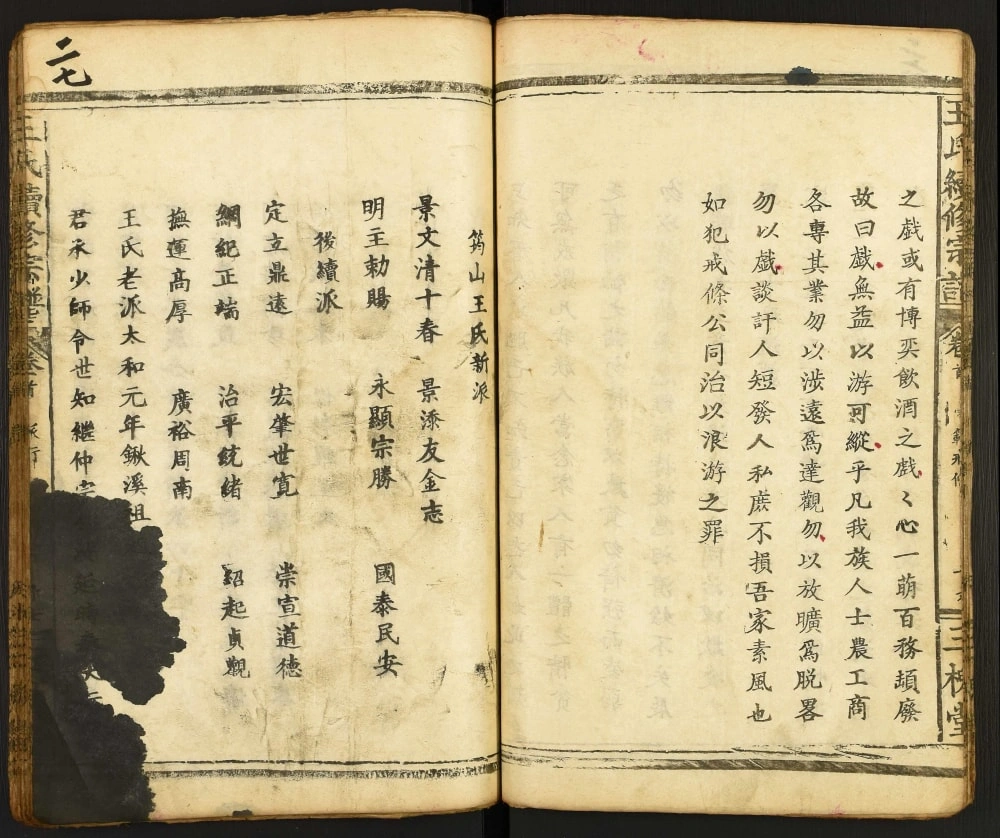 王氏續修宗譜
卷首
三槐堂
之戲或有博奕飲酒之戲〻心一萌百務頹廢
故曰戲無益以游可縱乎凡我族人士農工商
各專其業勿以涉遠爲達觀勿以放曠爲脱畧
勿以戲談訐人短發人私庶不損吾家素風也
如犯戒條公同治以浪游之罪
筠山王氏新派
景文清十春 景添友金志
明王勅賜 永顯宗勝 國泰民安
後續派
定立鼎遠 宏肇世寛 崇宣道德
綱紀正端 治平統緒 紹起貞觀
撫運高厚 廣裕周南
王氏老派太和元年鍬溪祖
君永少師令世知繼仲宗
王氏續修宗譜
卷首
派行
二七